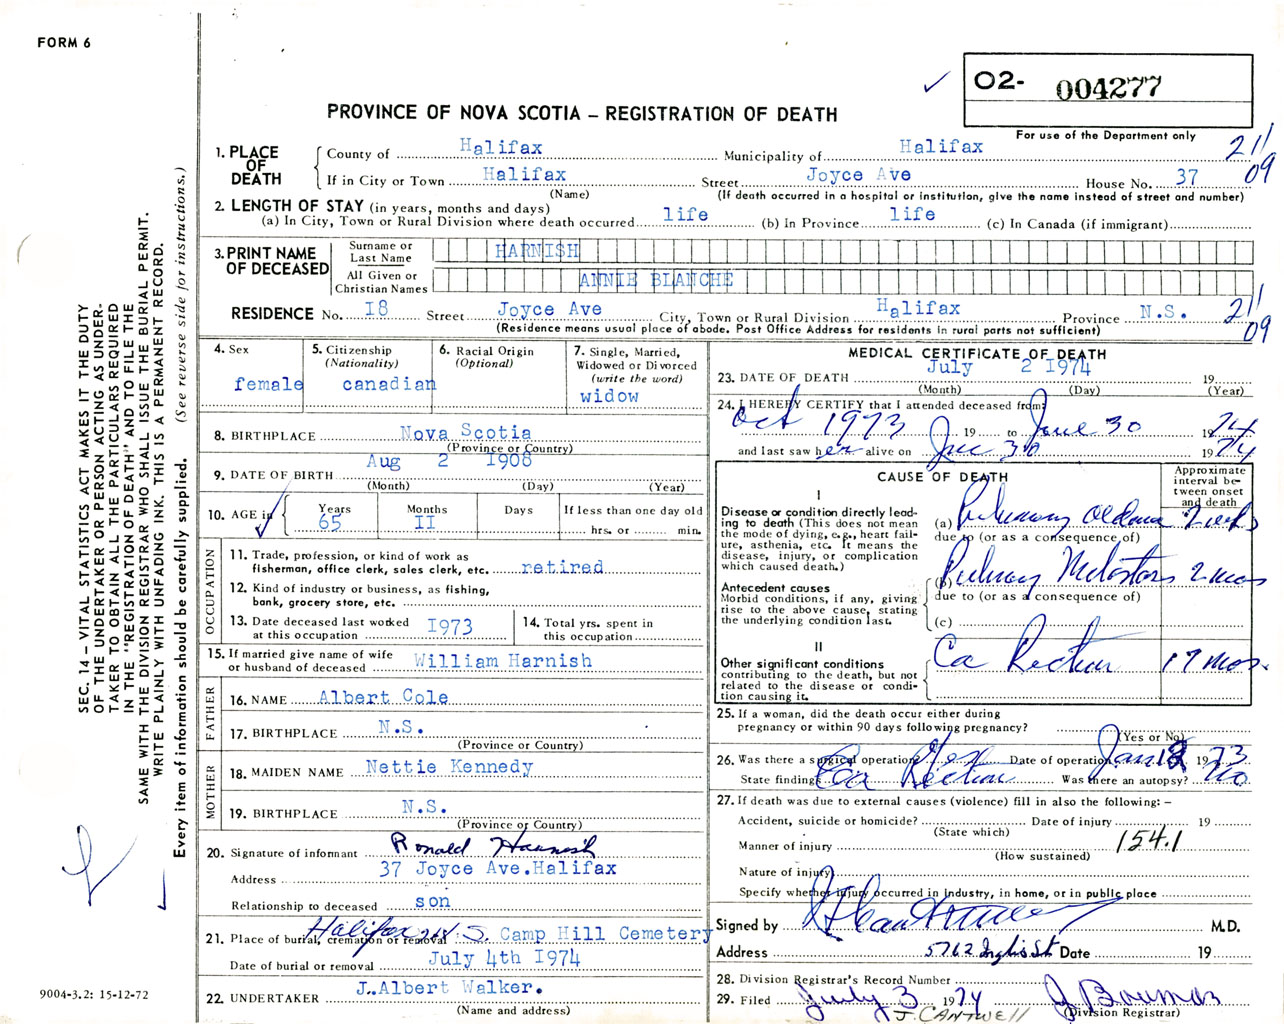 FORM 6
O2- 004277
PROVINCE OF NOVA SCOTIA – REGISTRATION OF DEATH
For use of the Department only
1. PLACE OF DEATH
County of Halifax Municipality of Halifax 21/
If in City or Town Halifax Street Joyce Ave House No. 37 09
(Name) (If death occurred in a hospital or institution, give the name instead of street and number)
2. LENGTH OF STAY (in years, months and days)
(a) In City, Town or Rural Division where death occurred life (b) In Province life (c) In Canada (if immigrant)
3. PRINT NAME OF DECEASED
Surname or Last Name HARNISH
All Given or Christian Names ANNIE BLANCHE
RESIDENCE No. I8 Street Joyce Ave City, Town or Rural Division Halifax Province N.S. 21/
(Residence means usual place of abode. Post Office Address for residents in rural parts not sufficient) 09
4. Sex
female
5. Citizenship
(Nationality)
canadian
6. Racial Origin
(Optional)
7. Single, Married,
Widowed or Divorced
(write the word)
widow
8. BIRTHPLACE Nova Scotia
(Province or Country)
9. DATE OF BIRTH Aug 2 I908
(Month) (Day) (Year)
10. AGE in
Years Months Days If less than one day old
65 II hrs. or min.
OCCUPATION
11. Trade, profession, or kind of work as
fisherman, office clerk, sales clerk, etc. retired
12. Kind of industry or business, as fishing,
bank, grocery store, etc.
13. Date deceased last worked
at this occupation I973
14. Total yrs. spent in
this occupation
15. If married give name of wife
or husband of deceased William Harnish
FATHER
16. NAME Albert Cole
17. BIRTHPLACE N.S.
(Province or Country)
MOTHER
18. MAIDEN NAME Nettie Kennedy
19. BIRTHPLACE N.S.
(Province or Country)
20. Signature of informant Ronald Harnish
Address 37 Joyce Ave.Halifax
Relationship to deceased son
21. Place of burial, cremation or removal Halifax Camp Hill Cemetery
Date of burial or removal July 4th I974
22. UNDERTAKER J.Albert Walker.
(Name and address)
MEDICAL CERTIFICATE OF DEATH
23. DATE OF DEATH July 2 I974 19
(Month) (Day) (Year)
24. I HEREBY CERTIFY that I attended deceased from
Oct 1973 19 to June 30 1974
and last saw her alive on June 30 1974
CAUSE OF DEATH
Approximate
interval be-
tween onset
and death
I
Disease or condition directly lead-
ing to death (This does not mean
the mode of dying, e.g., heart fail-
ure, asthenia, etc. It means the
disease, injury, or complication
which caused death.)
(a) Pulmonary Oedema 2 weeks
due to (or as a consequence of)
Antecedent causes
Morbid conditions, if any, giving
rise to the above cause, stating
the underlying condition last.
(b) Pulmonary Metastases 2 mos
due to (or as a consequence of)
(c)
II
Other significant conditions
contributing to the death, but not
related to the disease or condi-
tion causing it.
Ca Rectum 17 mos.
25. If a woman, did the death occur either during
pregnancy or within 90 days following pregnancy?
(Yes or No)
26. Was there a surgical operation? Yes Date of operation Jan 1973
State findings Ca Rectum Was there an autopsy? no
27. If death was due to external causes (violence) fill in also the following: –
Accident, suicide or homicide? Date of injury 19
(State which)
Manner of injury 154.1
(How sustained)
Nature of injury
Specify whether injury occurred in industry, in home, or in public place
Signed by M.D.
Address 5762 Inglis St Date 19
28. Division Registrar's Record Number
29. Filed July 3 1974 J Bowmas
J. CANTWELL (Division Registrar)
SEC. 14 – VITAL STATISTICS ACT MAKES IT THE DUTY
OF THE UNDERTAKER OR PERSON ACTING AS UNDER-
TAKER TO OBTAIN ALL THE PARTICULARS REQUIRED
IN THE "REGISTRATION OF DEATH" AND TO FILE THE
SAME WITH THE DIVISION REGISTRAR WHO SHALL ISSUE THE BURIAL PERMIT.
WRITE PLAINLY WITH UNFADING INK. THIS IS A PERMANENT RECORD.
Every item of information should be carefully supplied. (See reverse side for instructions.)
9004-3.2: 15-12-72